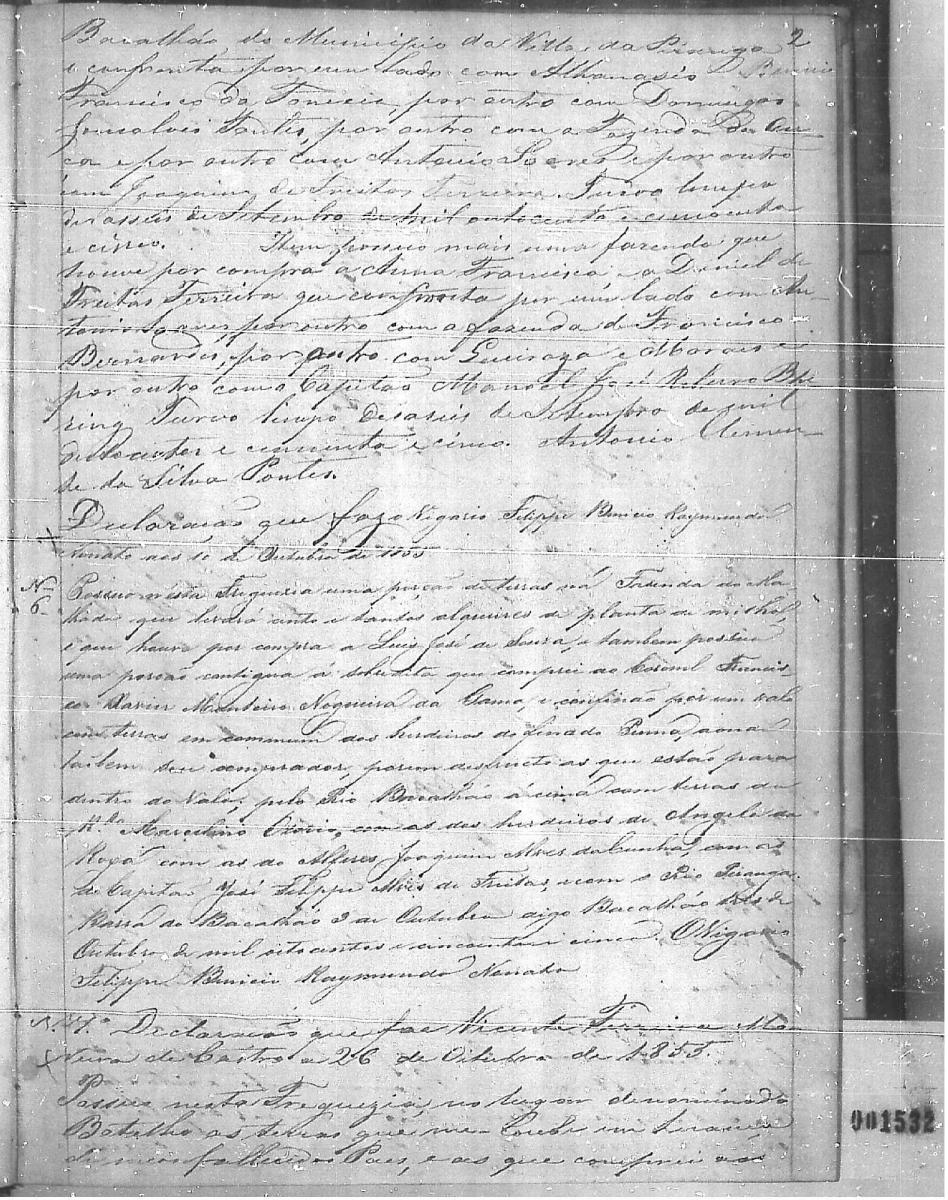 Bacalháo do Municipio da Villa da Piranga 2
e confronta por um lado com Athanasio
Francisco da Fonceca por outro com Domingos
Gonsalves Fontes, por outro com a Fazenda da
e por outro com Antonio Soares e por outro
com Joaquim de Freitas Ferreira. Turvo limpo
desasseis de Setembro de mil oitocentos e cincoenta
e cinco. Item possuo mais uma fazenda que
houve por compra a Anna Francisca e a Daniel de
Freitas Ferreira que confronta por um lado com An-
tonio Soares, por outro com a fazenda de Francisco
Bernardes, por outro com Queiroga e Moraes e
por outro com o Capitão Manoel José
Turvo limpo desaseis de Setembro de mil
oitocentos e cincoenta e cinco. Antonio Clemen-
te da Silva Pontes.
Declaração que faz o Vigario Filippe Binicio Raymundo
Nonato aos 10 de Outubro de 1855
Nº 6
Possuo nesta Freguezia uma porção de terras na Fazenda do Ma
lhado que levara cento e tantos alqueires de planta de milho,
e que houve por compra a Luis José de Souza, e tambem possuo
uma porção contigua á sobredita que comprei ao Coronel Francis-
co Xavier Monteiro Nogueira da Gama, e confinão por um vallo
com terras em commum dos herdeiros do finado Penna,
tãobem sou comprador, porem desfructo as que estão para
dentro do Vallo; pelo Rio Bacalháo á cima com terras de
Marcelino Ozorio, com as dos herdeiros de Angelo da
com as do Alferes Joaquim Alves da Cunha, com as
do Capitão José Filippe Alves de Freitas, e com o Rio Piranga.
Barra do Bacalháo 3 de Outubro digo Bacalháo tres de
Outubro de mil oitocentos e cincoenta e cinco. O Vigario
Filippe Binicio Raymundo Nonato
N. 7.º Declaração que faz Vicente Ferreira Mo
reira de Castro a 26 de Oitubro de 1855.
Possuo nesta Freguezia, no lugar denominado
Batalha as terras que me Coube em herança
de meos fallecidos Paes, e as que comprei aos
001532